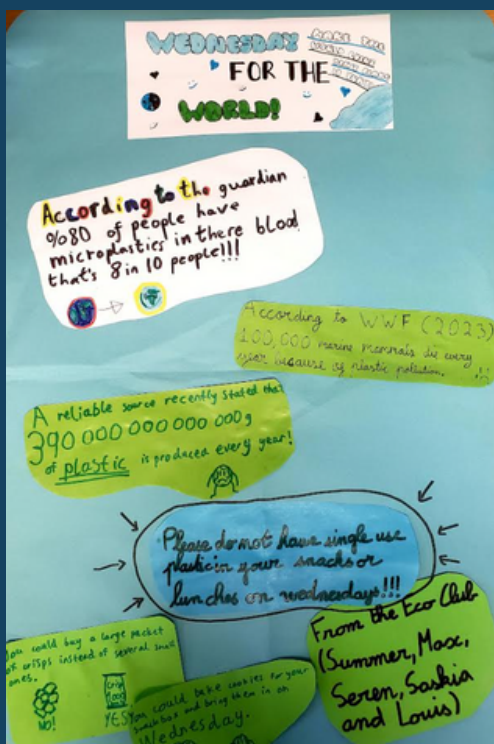 WEDNESDAY
FOR THE
WORLD!
MAKE THE
WORLD
According to the guardian
%80 of people have
microplastics in there blood
that's 8 in 10 people!!!
According to WWF (2023)
100,000 marine mammals die every
year because of plastic pollution. !!!
A reliable source recently stated that
390 000 000 000 000g
of plastic is produced every year!
Please do not have single use
plastic in your snacks or
lunches on wednesdays!!!
From the Eco Club
(Summer, Max,
Seren, Saskia
and Louis)
You could buy a large packet
of crisps instead of several small
ones.
NO!
YES
You could bake cookies for your
snackbox and bring them in on
Wednesday.